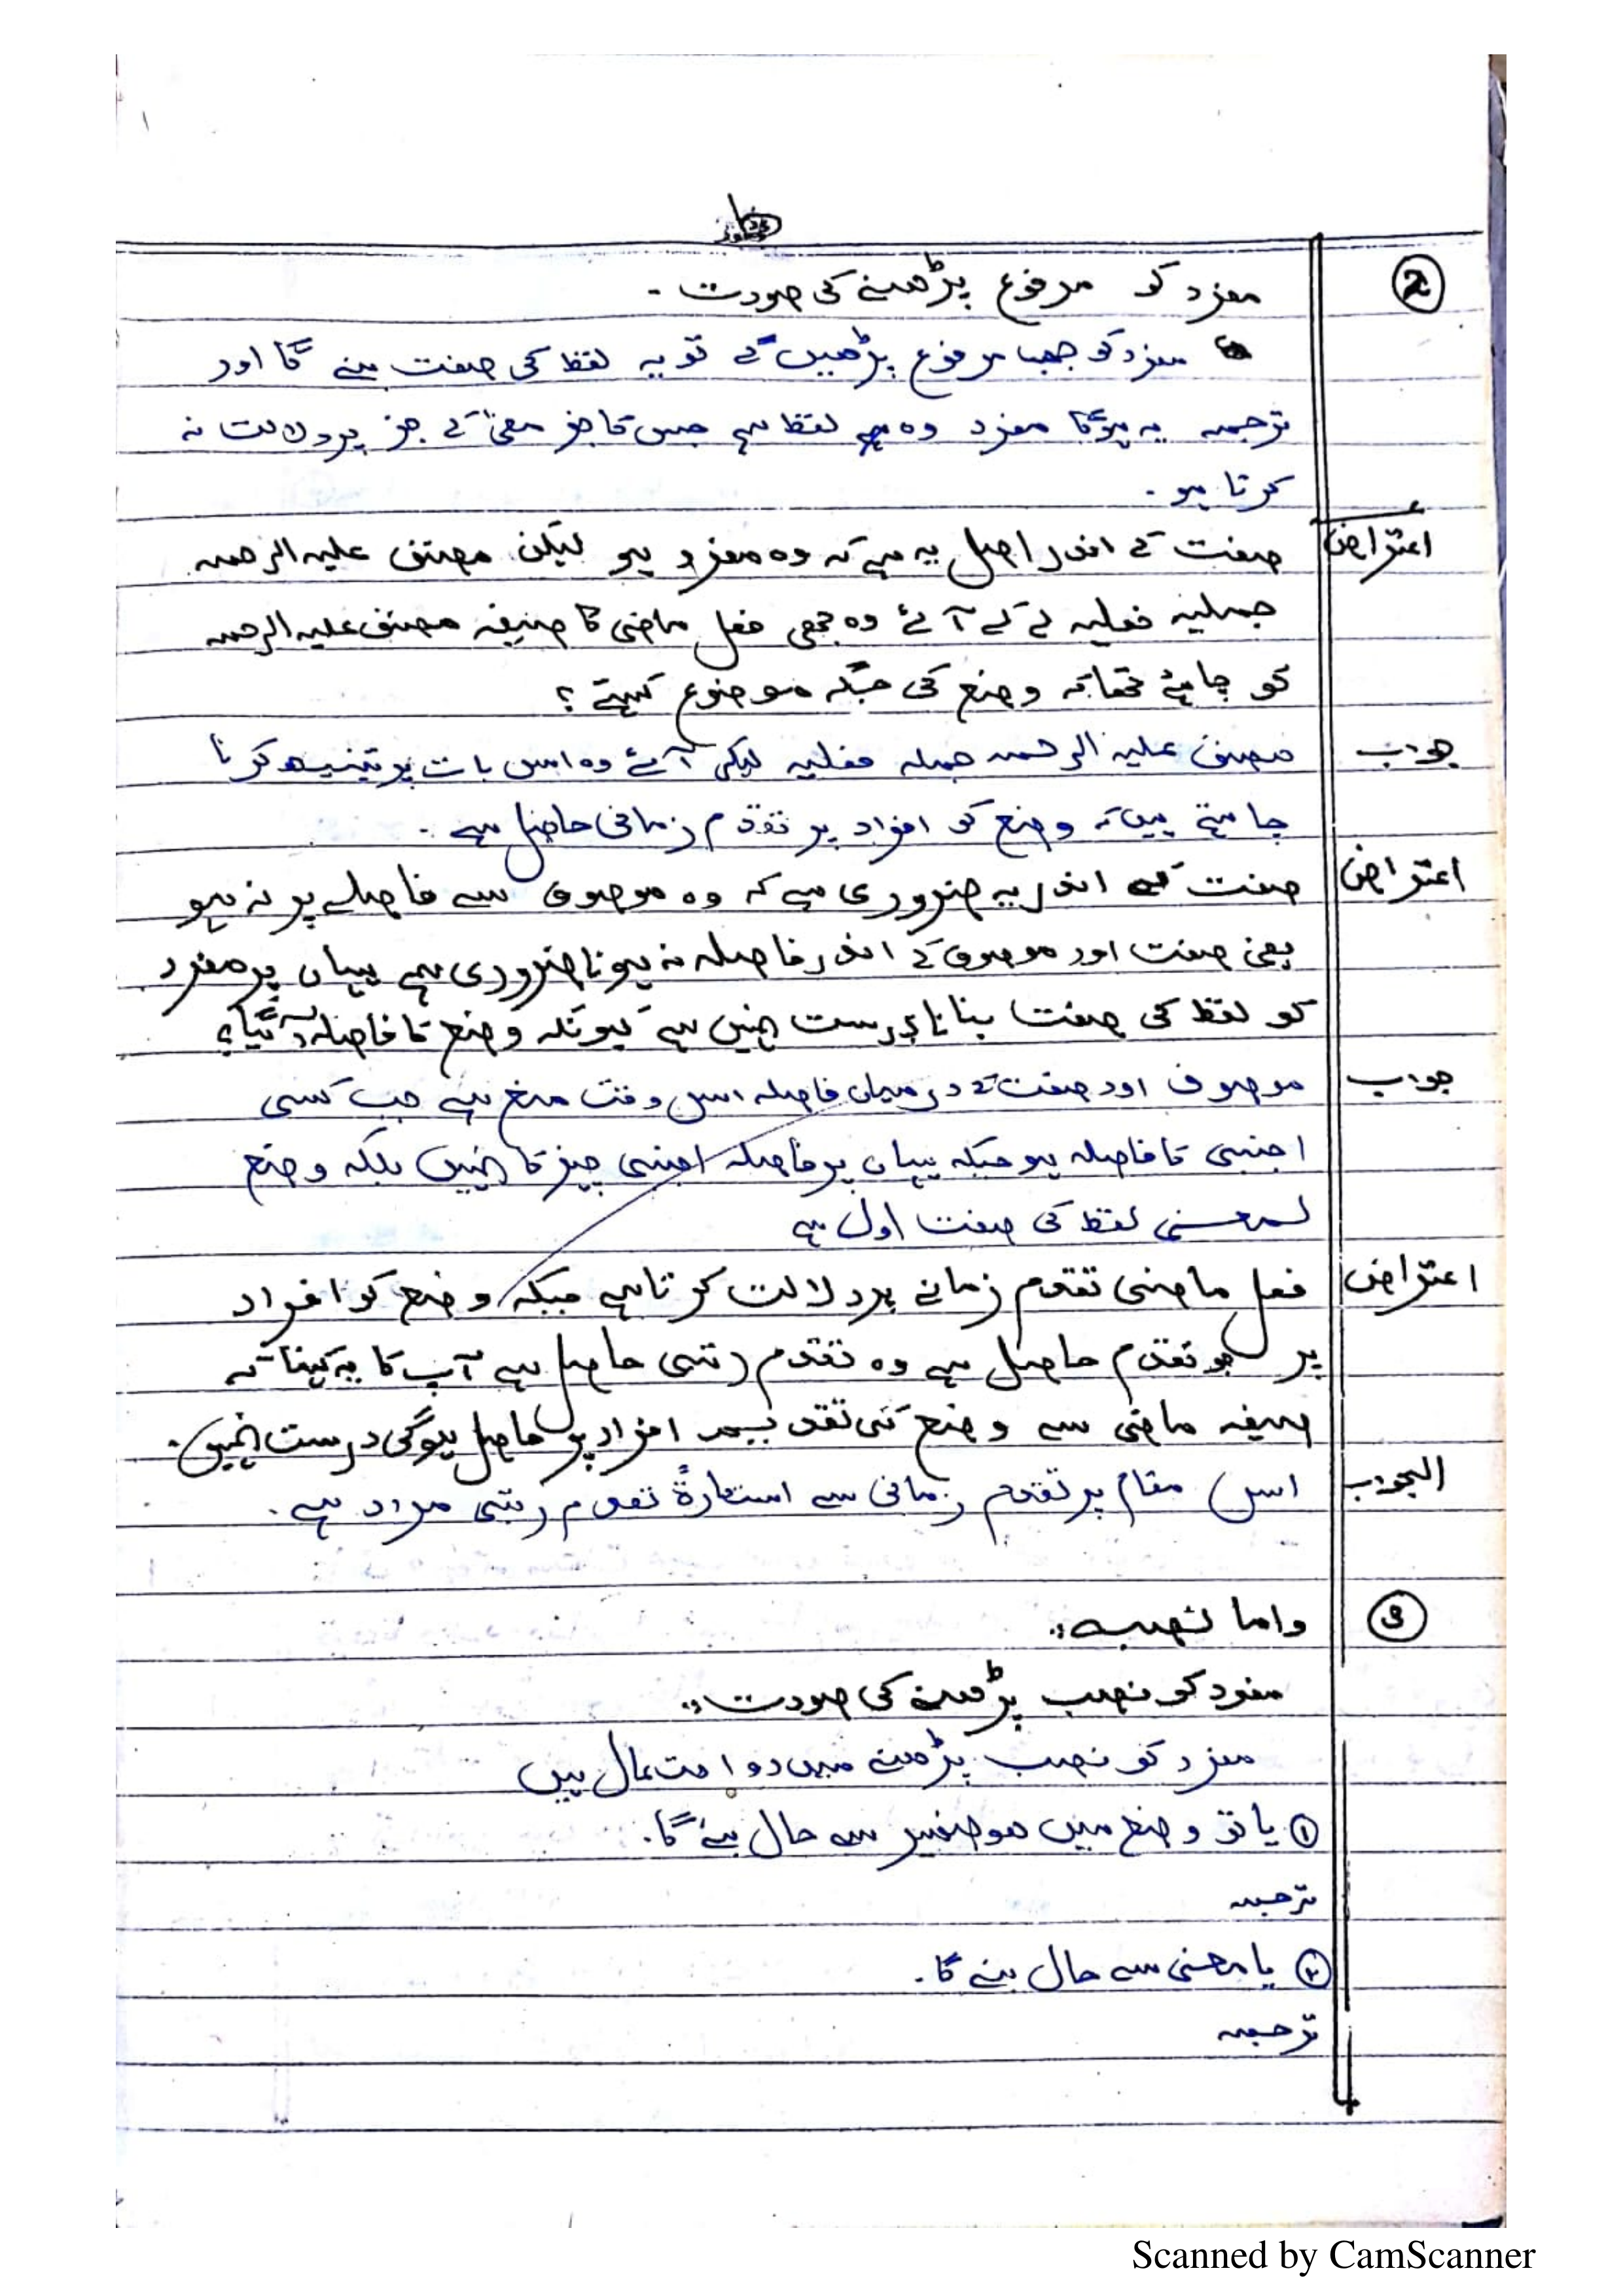 ② مفرد کو مرفوع پڑھنے کی صورت -
مفرد کو جب مرفوع پڑھیں گے تو یہ لفظ کی صفت بنے گا اور
ترجمہ یہ ہوگا مفرد وہ لفظ ہے جس کا جز معنیٰ کے جز پر دلالت نہ
کرتا ہو -
اعتراض صفت کے اندر اصل یہ ہے کہ وہ مفرد ہو لیکن مصنف علیہ الرحمہ
جملیہ فعلیہ لے کے آئے وہ بھی فعل ماضی کا صیغہ مصنف علیہ الرحمہ
کو چاہئے تھا کہ وضع کی جگہ موضوع کہتے ؟
جواب مصنف علیہ الرحمہ جملہ فعلیہ لیکر آئے وہ اس بات پر تنبیہ کرنا
چاہتے ہیں کہ وضع کو افراد پر تقدم زمانی حاصل ہے -
اعتراض صفت کے اندر یہ ضروری ہے کہ وہ موصوف سے فاصلے پر نہ ہو
یعنی صفت اور موصوف کے اندر فاصلہ نہ ہونا ضروری ہے یہاں پر مفرد
کو لفظ کی صفت بنانا درست نہیں ہے کیونکہ وضع کا فاصلہ آ گیا؟
جواب موصوف اور صفت کے درمیان فاصلہ اس وقت منع ہے جب کسی
اجنبی کا فاصلہ ہو جبکہ یہاں پر فاصلہ اجنبی چیز کا نہیں بلکہ وضع
لمعنی لفظ کی صفت اول ہے
اعتراض فعل ماضی تقدم زمانے پر دلالت کرتا ہے جبکہ وضع کو افراد
پر جو تقدم حاصل ہے وہ تقدم رتبی حاصل ہے آپ کا یہ کہنا کہ
صیغہ ماضی سے وضع کی افراد پر حاصل ہوگی درست نہیں -
الجواب اس مقام پر تقدم زمانی سے استعارۃً تقدم رتبی مراد ہے -
③ واما نصبہ :
مفرد کو نصب پڑھنے کی صورت :
مفرد کو نصب پڑھنے میں دو احتمال ہیں
① یا تو وضع میں ھو ضمیر سے حال بنے گا -
ترجمہ
② یا معنی سے حال بنے گا -
ترجمہ
Scanned by CamScanner